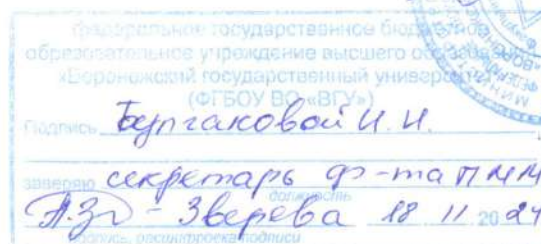 федеральное государственное бюджетное
образовательное учреждение высшего образования
«Воронежский государственный университет»
(ФГБОУ ВО «ВГУ»)
Подпись Булгаковой И. И.
заверяю секретарь ф-та ПММ
должность
- Зверева 18 11 2024
подпись, расшифровка подписи